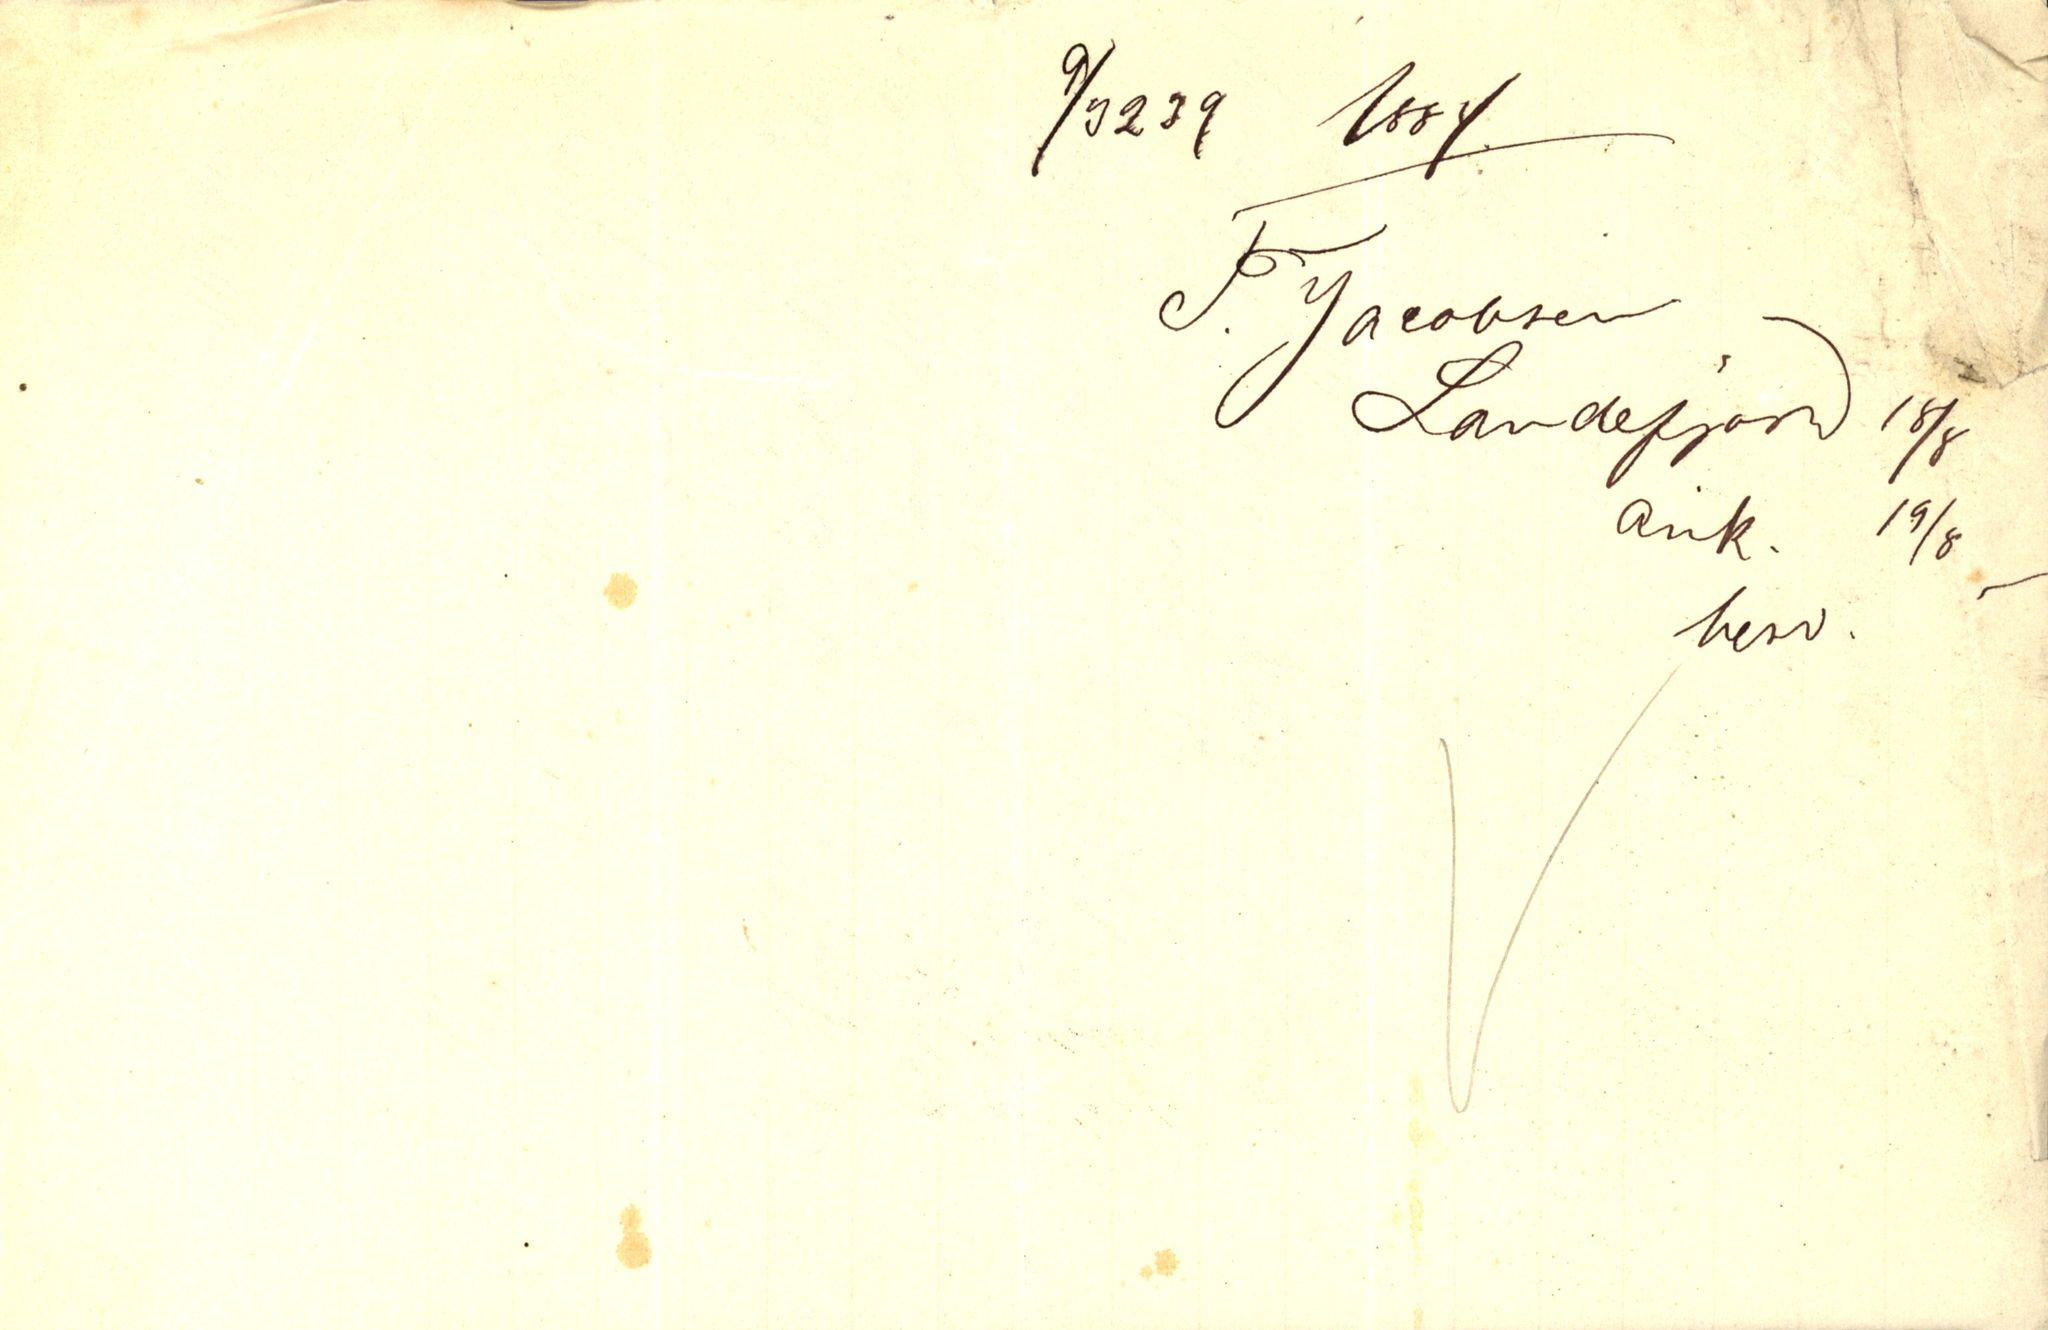 9/3239 1884.
F. Jacobsen
Sandefjord 18/8
ank. 19/8
besv.